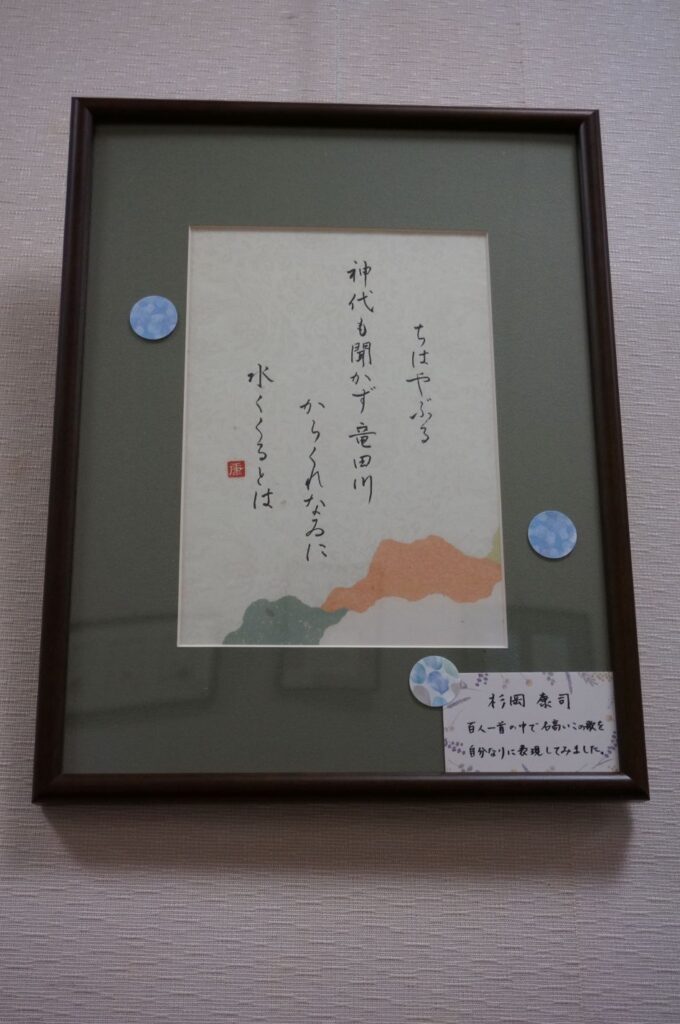 ちはやぶる
神代も聞かず竜田川
からくれなゐに
水くくるとは
康
杉岡 康司
百人一首の中で名高いこの歌を
自分なりに表現してみました。